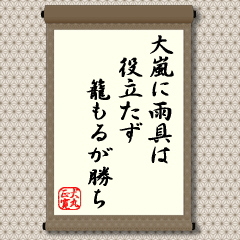 大嵐に雨具は
役立たず
籠もるが勝ち